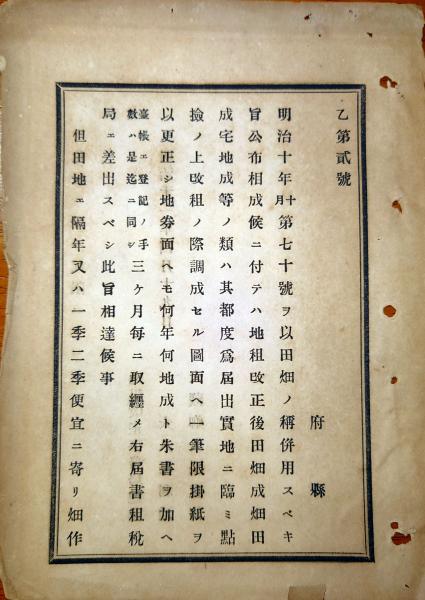 乙第貳號
府縣
明治十年十月第七十號ヲ以田畑ノ稱併用スベキ
旨公布相成候ニ付テハ地租改正後田畑成畑田
成宅地成等ノ類ハ其都度爲届出實地ニ臨ミ點
撿ノ上改租ノ際調成セル圖面ヘ一筆限掛紙ヲ
以更正シ地劵面ヘモ何年何地成ト朱書ヲ加ヘ
臺帳エ登記ノ手數ハ是迄ニ同シ三ヶ月毎ニ取纒メ右届書租稅
局エ差出スベシ此旨相達候事
但田地エ隔年又ハ一季二季便宜ニ寄リ畑作